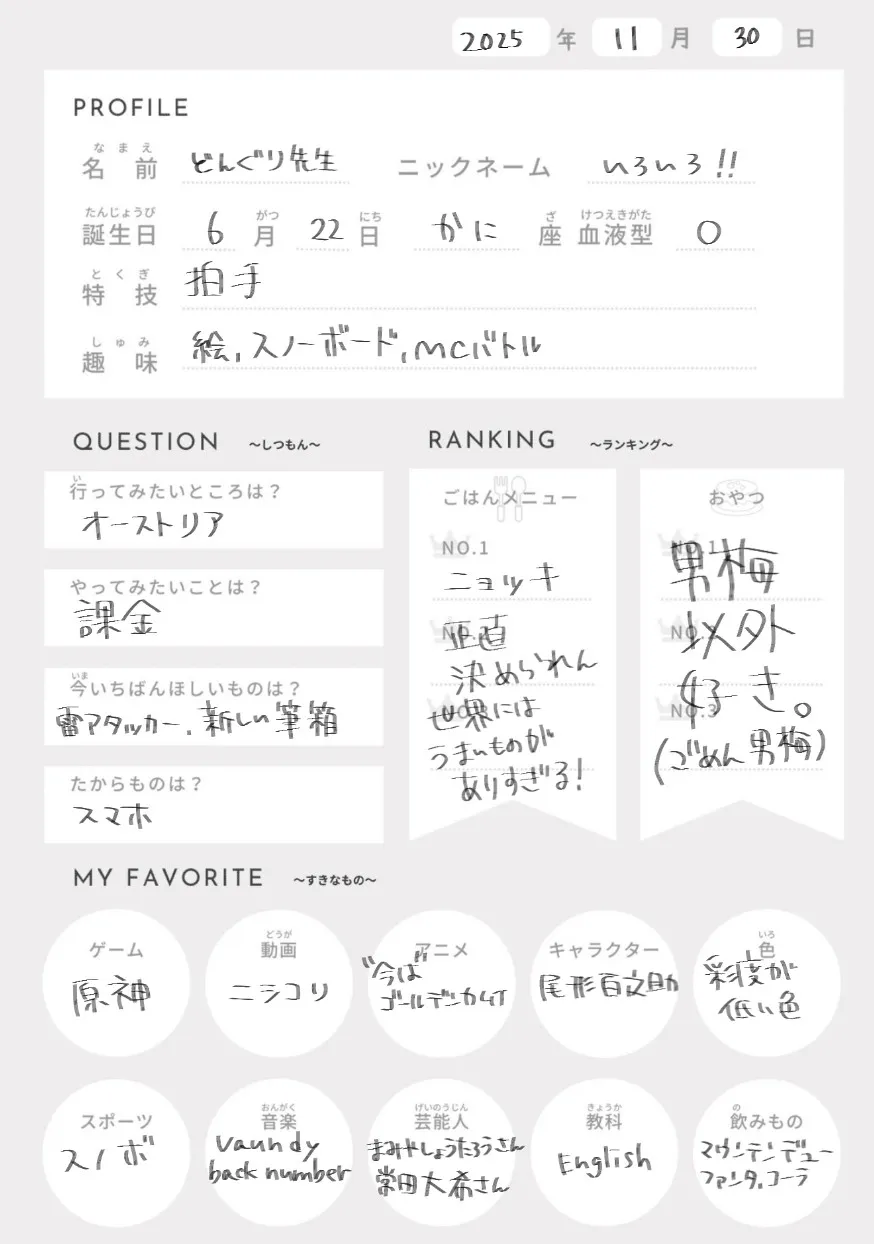 2025 年 11 月 30 日
PROFILE
なまえ
名前 どんぐり先生 ニックネーム いろいろ!!
たんじょうび がつ にち ざ けつえきがた
誕生日 6 月 22 日 かに 座 血液型 O
とくぎ
特技 拍手
しゅみ
趣味 絵,スノーボード,MCバトル
QUESTION ～しつもん～
い
行ってみたいところは?
オーストリア
やってみたいことは?
課金
いま
今いちばんほしいものは?
雷アタッカー、新しい筆箱
たからものは?
スマホ
RANKING ～ランキング～
ごはんメニュー
NO.1
ニョッキ
NO.2
正直
決められれん
NO.3
世界には
うまいものが
ありすぎる!
おやつ
NO.1
男梅
NO.2
以外
好き。
NO.3
(ごめん男梅)
MY FAVORITE ～すきなもの～
ゲーム
原神
どうが
動画
ニシコリ
アニメ
"今は"
ゴールデンカムイ
キャラクター
尾形百之助
いろ
色
彩度が
低い色
スポーツ
スノボ
おんがく
音楽
Vaundy
back number
げいのうじん
芸能人
まみやしょうたろうさん
常田大希さん
きょうか
教科
English
の
飲みもの
マウンテンデュー
ファンタ,コーラ